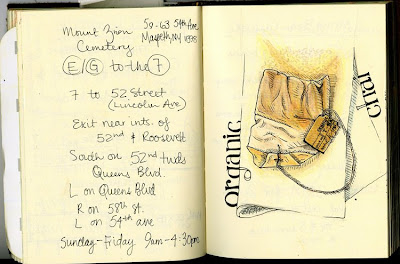 Mount Zion
Cemetery
59-63 54th Ave
Maspeth, NY 11378
E/G to the 7
7 to 52 Street
(Lincoln Ave)
Exit near ints. of
52nd & Roosevelt
South on 52nd twds
Queens Blvd.
L on Queens Blvd
R on 58th st.
L on 54th ave
Sunday-Friday 9am-4:30pm
organic
chai